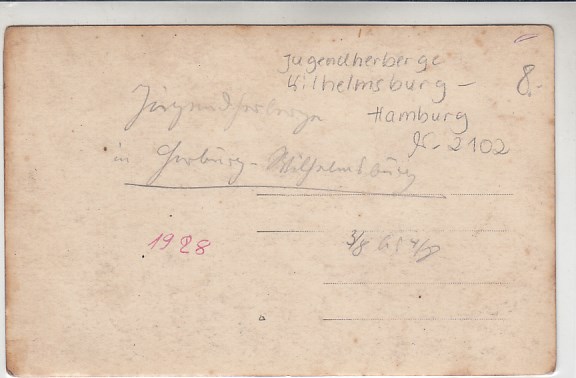 Jugendherberge
Wilhelmsburg -
Hamburg
8.-
2102
Jugendherberge
in Harburg - Wilhelmsburg
1928
3/8